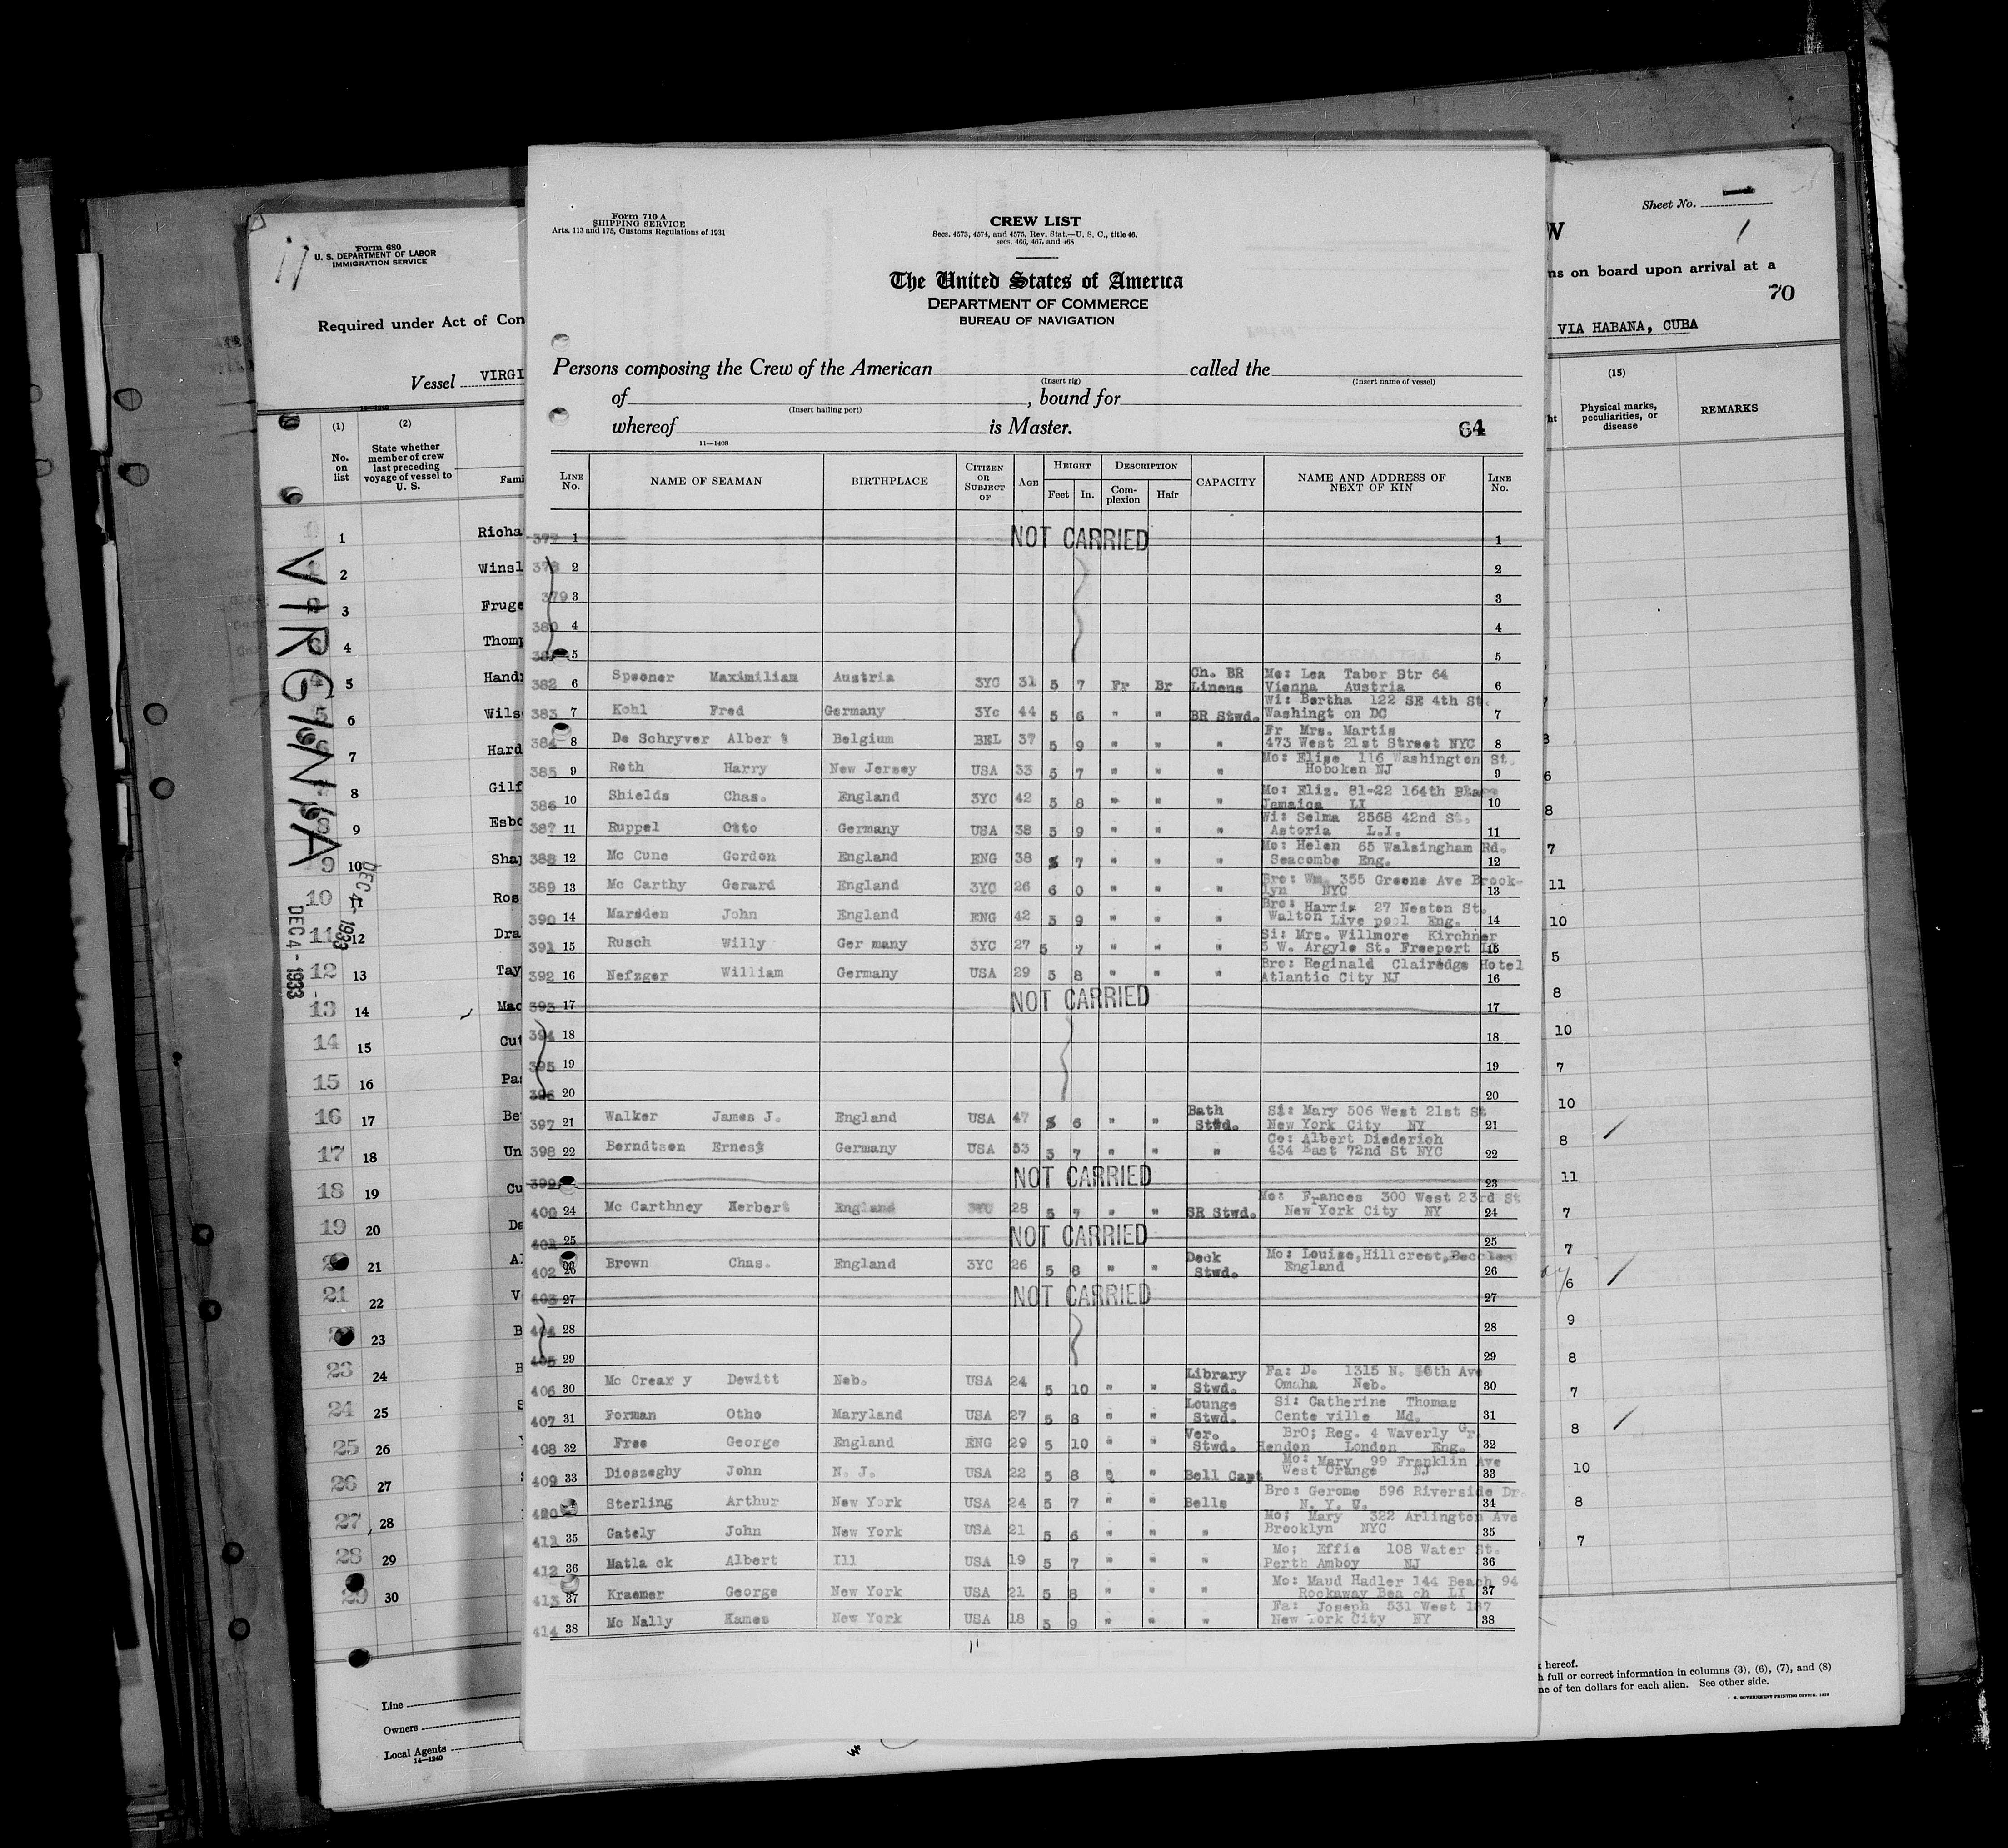 11
Form 680
U. S. DEPARTMENT OF LABOR
IMMIGRATION SERVICE
Required under Act of Con
Vessel VIRGI
(1) (2)
No. on list
State whether member of crew last preceding voyage of vessel to U. S.
Fami
1 Richa
2 Winsl
3 Fruge
4 Thomp
5 Hand
6 Wils
7 Hard
8 Gilf
9 Esbo
9 10 Sha
10 11 Ros
11 12 Dra
12 13 Tay
13 14 Mac
14 15 Cut
15 16 Pa
16 17 Be
17 18 Un
18 19 Cu
19 20 Da
21 A
21 22 V
23 B
23 24 H
24 25
25 26
26 27
27 28
28 29
29 30
VIRGINIA
DEC 4 - 1933
DEC 4 - 1933
Line
Owners
Local Agents
14—1240
Form 710 A
SHIPPING SERVICE
Arts. 113 and 175, Customs Regulations of 1931
CREW LIST
Secs. 4573, 4574, and 4575, Rev. Stat.—U. S. C., title 46, secs. 466, 467, and 468
The United States of America
DEPARTMENT OF COMMERCE
BUREAU OF NAVIGATION
Persons composing the Crew of the American called the
(Insert rig) (Insert name of vessel)
of , bound for
(Insert hailing port)
whereof is Master. 64
11—1408
LINE No. NAME OF SEAMAN BIRTHPLACE CITIZEN OR SUBJECT OF AGE HEIGHT Feet In. DESCRIPTION Complexion Hair CAPACITY NAME AND ADDRESS OF NEXT OF KIN LINE No.
377 1 NOT CARRIED 1
378 2 2
379 3 3
380 4 4
381 5 5
382 6 Spooner Maximiliam Austria 3YC 31 5 7 Fr Br Ch. BR Linens Mo: Lea Tabor Str 64 Vienna Austria 6
383 7 Kohl Fred Germany 3Yc 44 5 6 " " BR Stwd. Wi: Bertha 122 SE 4th St. Washingt on DC 7
384 8 De Schryver Alber t Belgium BEL 37 5 9 " " " Fr Mrs. Martis 473 West 21st Street NYC 8
385 9 Roth Harry New Jersey USA 33 5 7 " " " Mo: Elise 116 Washington St. Hoboken NJ 9
386 10 Shields Chas. England 3YC 42 5 8 " " " Mo: Eliz. 81-22 164th Place Jamaica LI 10
387 11 Ruppel Otto Germany USA 38 5 9 " " " Wi: Selma 2568 42nd St. Astoria L.I. 11
388 12 Mc Cune Gordon England ENG 38 5 7 " " " Mo: Helen 65 Walsingham Rd. Seacombe Eng. 12
389 13 Mc Carthy Gerard England 3YC 26 6 0 " " " Bro: Wm. 355 Greene Ave Brook-lyn NYC 13
390 14 Marsden John England ENG 42 5 9 " " " Bro: Harris 27 Neston St. Walton Live pool Eng. 14
391 15 Rusch Willy Ger many 3YC 27 5 7 " " " Si: Mrs. Willmore Kirchner 5 W. Argyle St. Freeport LI 15
392 16 Nefzger William Germany USA 29 5 8 " " " Bro: Reginald Clairedge Hotel Atlantic City NJ 16
393 17 NOT CARRIED 17
394 18 18
395 19 19
396 20 20
397 21 Walker James J. England USA 47 5 6 " " Bath Stwd. Si: Mary 306 West 21st St New York City NY 21
398 22 Berndtsen Ernest Germany USA 53 5 7 " " " Co: Albert Diederich 434 East 72nd St NYC 22
399 NOT CARRIED 23
400 24 Mc Carthney Herbert England 3YC 28 5 7 " " SR Stwd. Mo: Frances 300 West 23rd St New York City NY 24
401 25 NOT CARRIED 25
402 26 Brown Chas. England 3YC 26 5 8 " " Deck Stwd. Mo: Louise,Hillcrest,Beccles England 26
403 27 NOT CARRIED 27
404 28 28
405 29 29
406 30 Mc Crear y Dewitt Neb. USA 24 5 10 " " Library Stwd. Fa: D. 1315 N. th Ave Omaha Neb. 30
407 31 Forman Otho Maryland USA 27 5 8 " " Lounge Stwd. Si: Catherine Thomas Cente ville Md. 31
408 32 Free George England ENG 29 5 10 " " Ver. Stwd. BrO; Reg. 4 Waverly Gr. Hendon London Eng. 32
409 33 Dioszeghy John N. J. USA 22 5 8 " " Bell Capt Mo: Mary 99 Franklin Ave West Orange NJ 33
Sterling Arthur New York USA 24 5 7 " " Bells Bro: Gerome 596 Riverside Dr. N. Y. C. 34
411 35 Gately John New York USA 21 5 6 " " " Mo; Mary 322 Arlington Ave Brooklyn NYC 35
412 36 Matla ck Albert Ill USA 19 5 7 " " " Mo; Effie 108 Water St. Perth Amboy NJ 36
413 37 Kraemer George New York USA 21 5 8 " " " Mo: Maud Hadler 144 Beach 94 Rockaway Bea ch LI 37
414 38 Mc Nally Kames New York USA 18 5 9 " " " Fa: Joseph 531 West 187 New York City NY 38
Sheet No. 1
W
ns on board upon arrival at a
70
VIA HABANA, CUBA
(15)
ht
Physical marks, peculiarities, or disease
REMARKS
6
8
7
11
10
5
8
10
7
10
8
11
7
7
6
9
8
7
8
10
8
7
hereof.
h full or correct information in columns (3), (6), (7), and (8)
ne of ten dollars for each alien. See other side.
GOVERNMENT PRINTING OFFICE. 1929